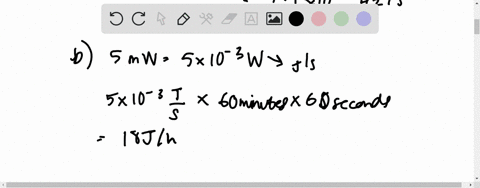 b) 5 mW = 5×10⁻³ W → J/s
5×10⁻³ J/s × 60 minutes × 60 seconds
= 18 J/h